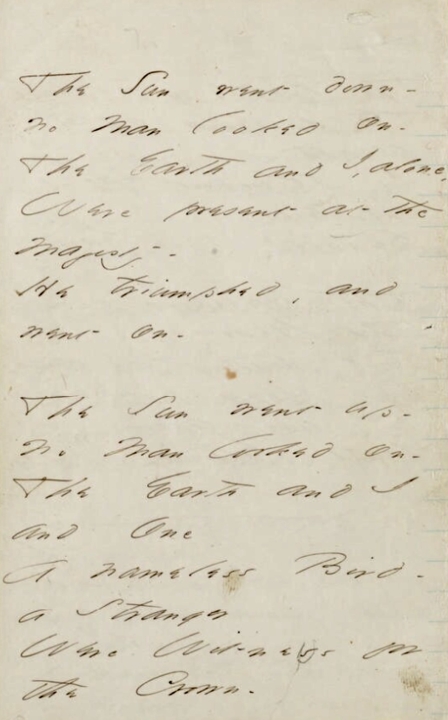 The Sun went down -
no Man looked on -
The Earth and I, alone,
Were present at the
Majesty -
He triumphed, and
went on -
The Sun went up -
no Man looked on -
The Earth and I
and One
A nameless Bird -
a Stranger
Were Witness for
the Crown -